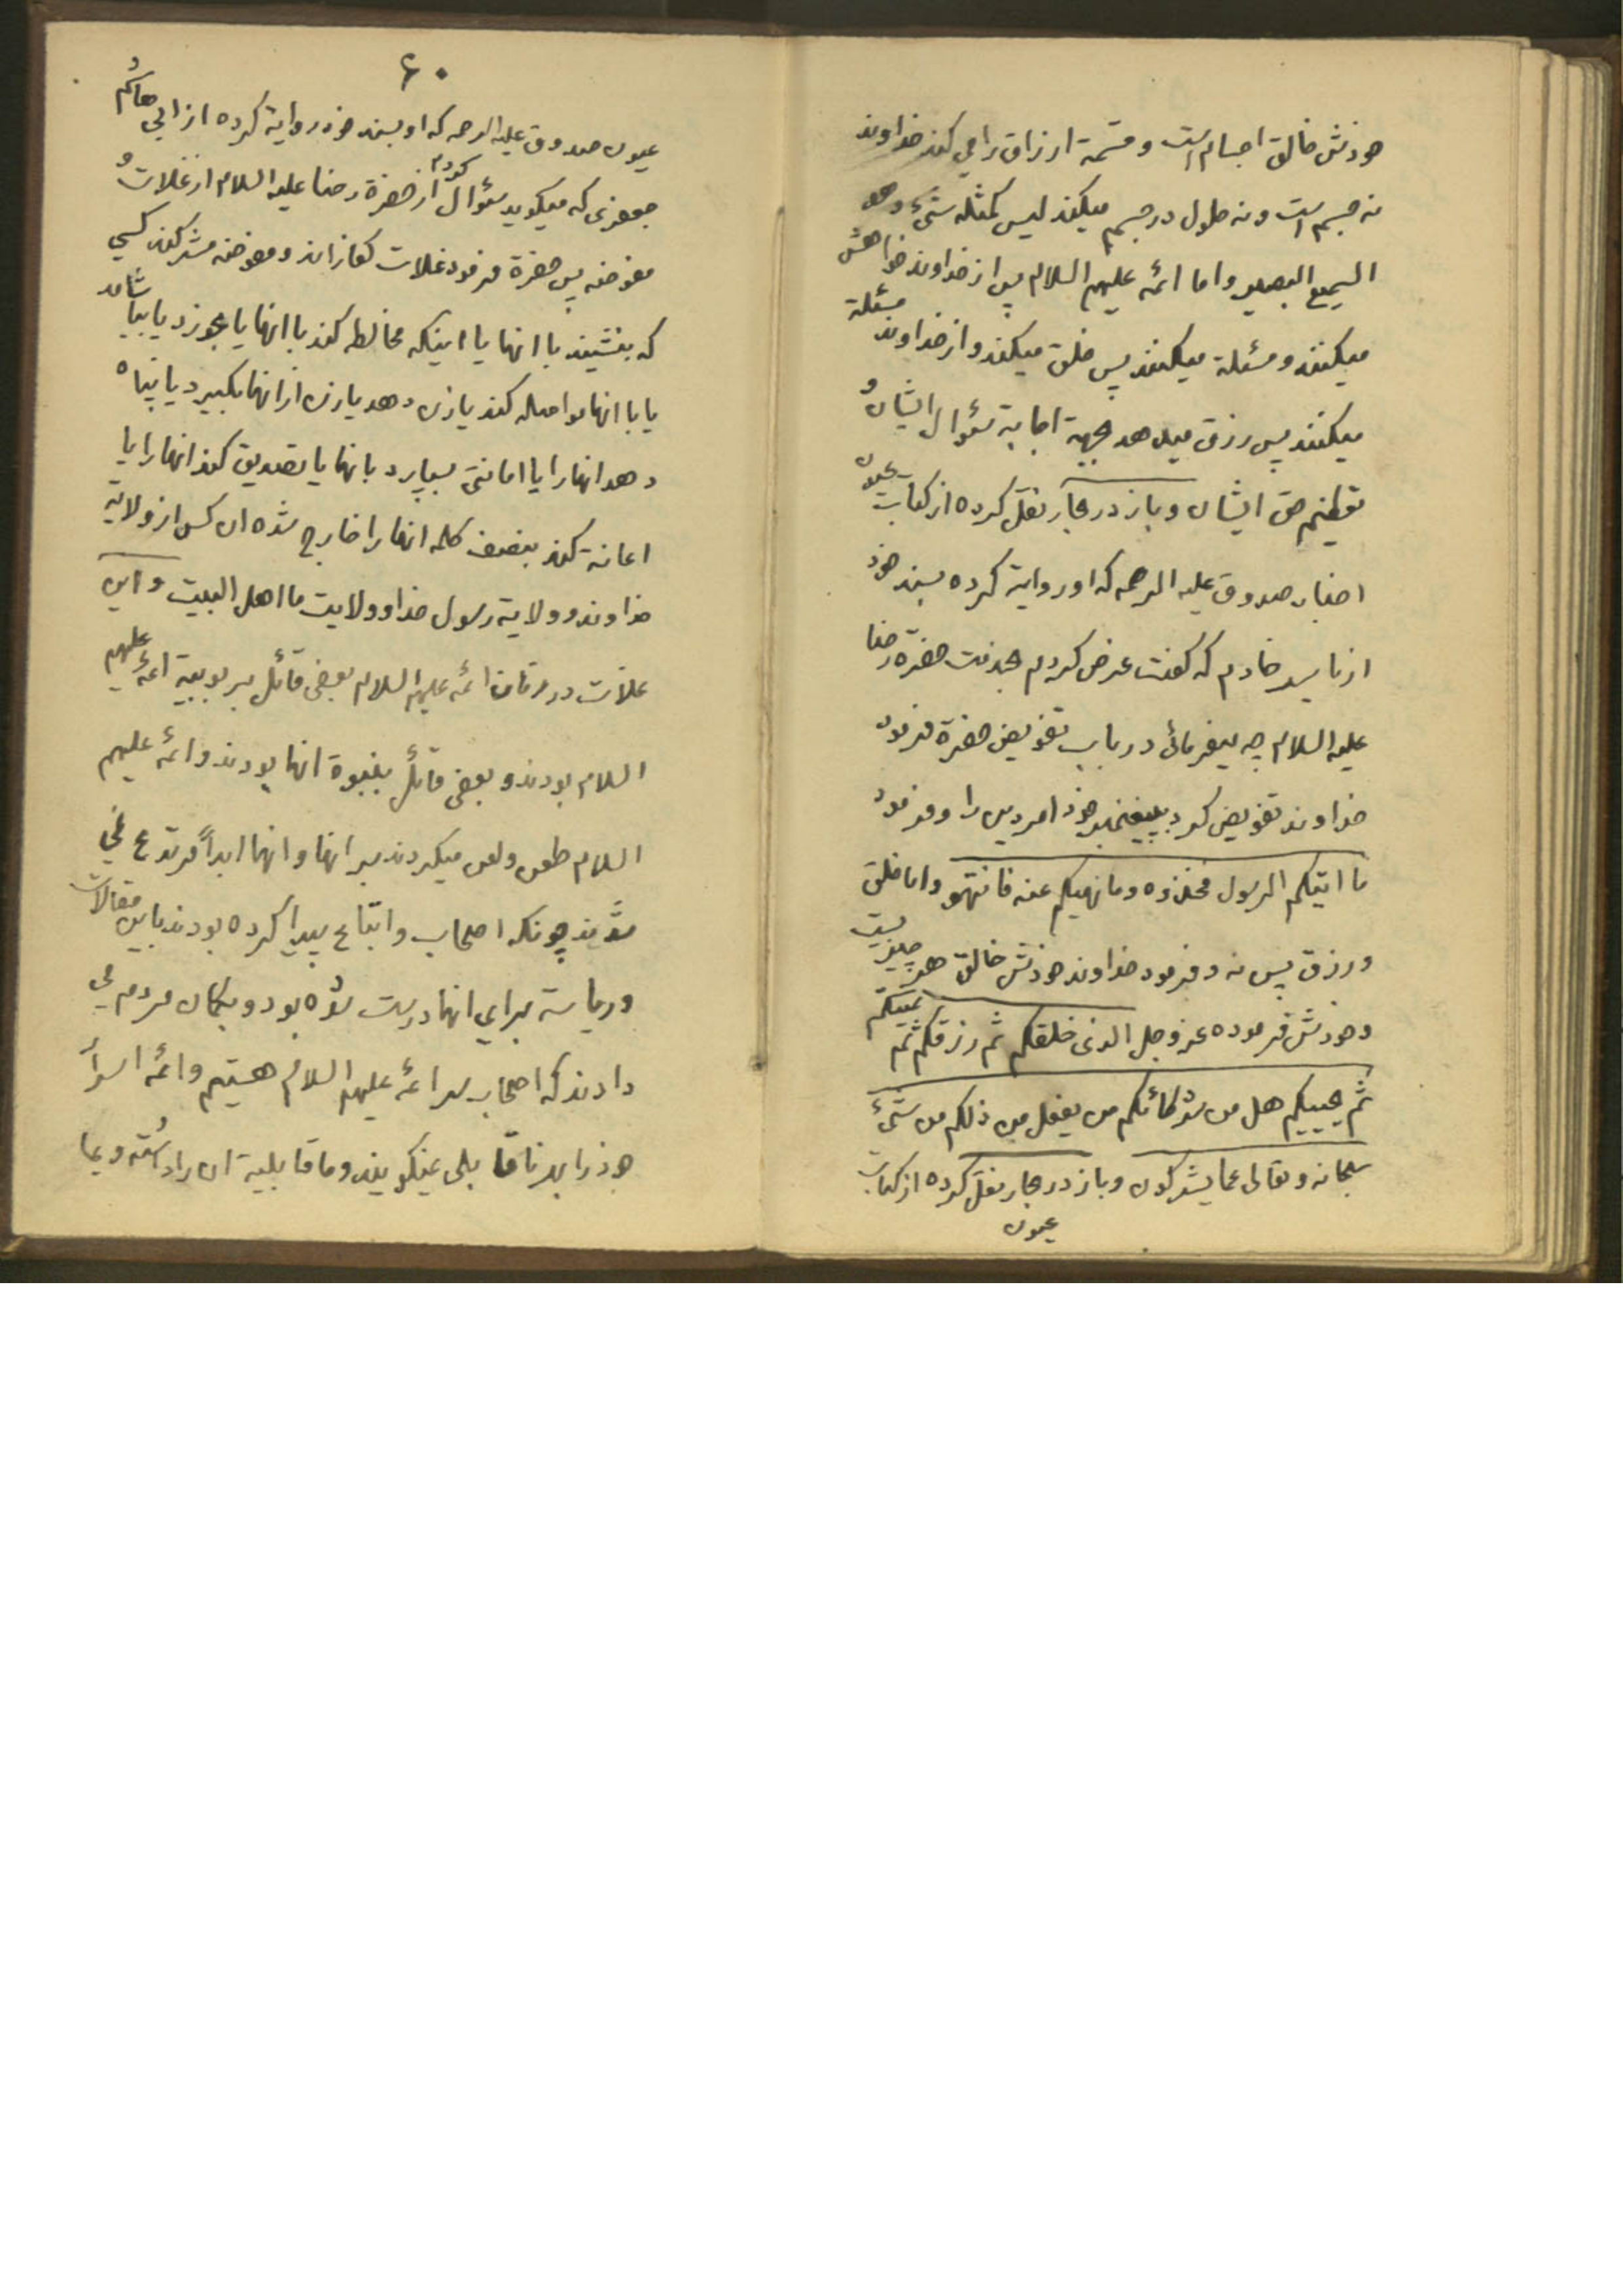 خودش خالق اجسام است و قسمة ارزاق را می کند خداوند
نه جسم است و نه حلول در جسم میکند لیس کمثله شیٔ وهو
السمیع البصیر و اما ائمه علیهم السلام پس از خداوند خواهش
میکنند و مسئلة میکنند پس خلق میکند و از خداوند مسئلة
میکنند پس رزق میدهد جهة اجابة سئوال ایشان و
تعظیم حق ایشان و باز در بحار نقل کرده از کتاب عیون
اخبار صدوق علیه الرحمه که او روایة کرده بسند خود
از یاسر خادم که گفت عرض کردم بخدمت حضرة رضا
علیه السلام چه میفرمائی در باب تفویض حضرة فرمود
خداوند تفویض کرد بپیغمبر خود امر دین را و فرمود
ما اتیکم الرسول فخذوه وما نهیکم عنه فانتهو و اما خلق
و رزق پس نه و فرمود خداوند خودش خالق هر چیزیست
و خودش فرموده عز وجل الذی خلقکم ثم رزقکم ثم یمیتکم
ثم یحییکم هل من شرکائکم من یفعل من ذلکم من شیٔ
سبحانه وتعالی عما یشرکون و باز در بحار نقل کرده از کتاب
عیون
۶۰
عیون صدوق علیه الرحمه که او بسند خود روایة کرده از ابی هاشم
جعفری که میگوید سئوال کردم از حضرة رضا علیه السلام از غلات و
مفوضه پس حضرة فرمود غلات کفارند و مفوضه مشرکند کسی
که بنشیند با انها یا اینکه مخالطه کند با انها یا بخورد یا بیاشامد
یا با انها مواصله کند یا زن دهد یا زن از انها بگیرد یا پناه
دهد انها را یا امانتی بسپارد بانها یا تصدیق کند انها را یا
اعانة کند بنصف کلمه انها را خارج شده ان کس از ولایة
خداوند و ولایة رسول خدا و ولایت ما اهل البیت و این
غلات در زمان ائمه علیهم السلام بعضی قائل بربوبیة ائمه علیهم
السلام بودند و بعضی قائل بنبوة انها بودند و ائمه علیهم
السلام طعن و لعن میکردند بر انها و انها ابداً مرتدع نمی
شدند چونکه اصحاب و اتباع پیدا کرده بودند باین مقالات
و ریاسة برای انها درست شده بود و بگمان مردم می
دادند که اصحاب سر ائمه علیهم السلام هستیم و ائمه اسرار
خود را بهر ناقابلی نمیگویند و ما قابلیة ان را داشته و بما